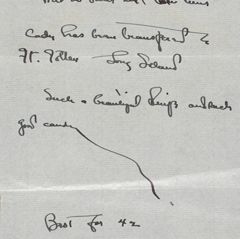 Cady has been transferred to
Ft. Tilden Long Island
Such a beautiful and such
good candy
Best for 42